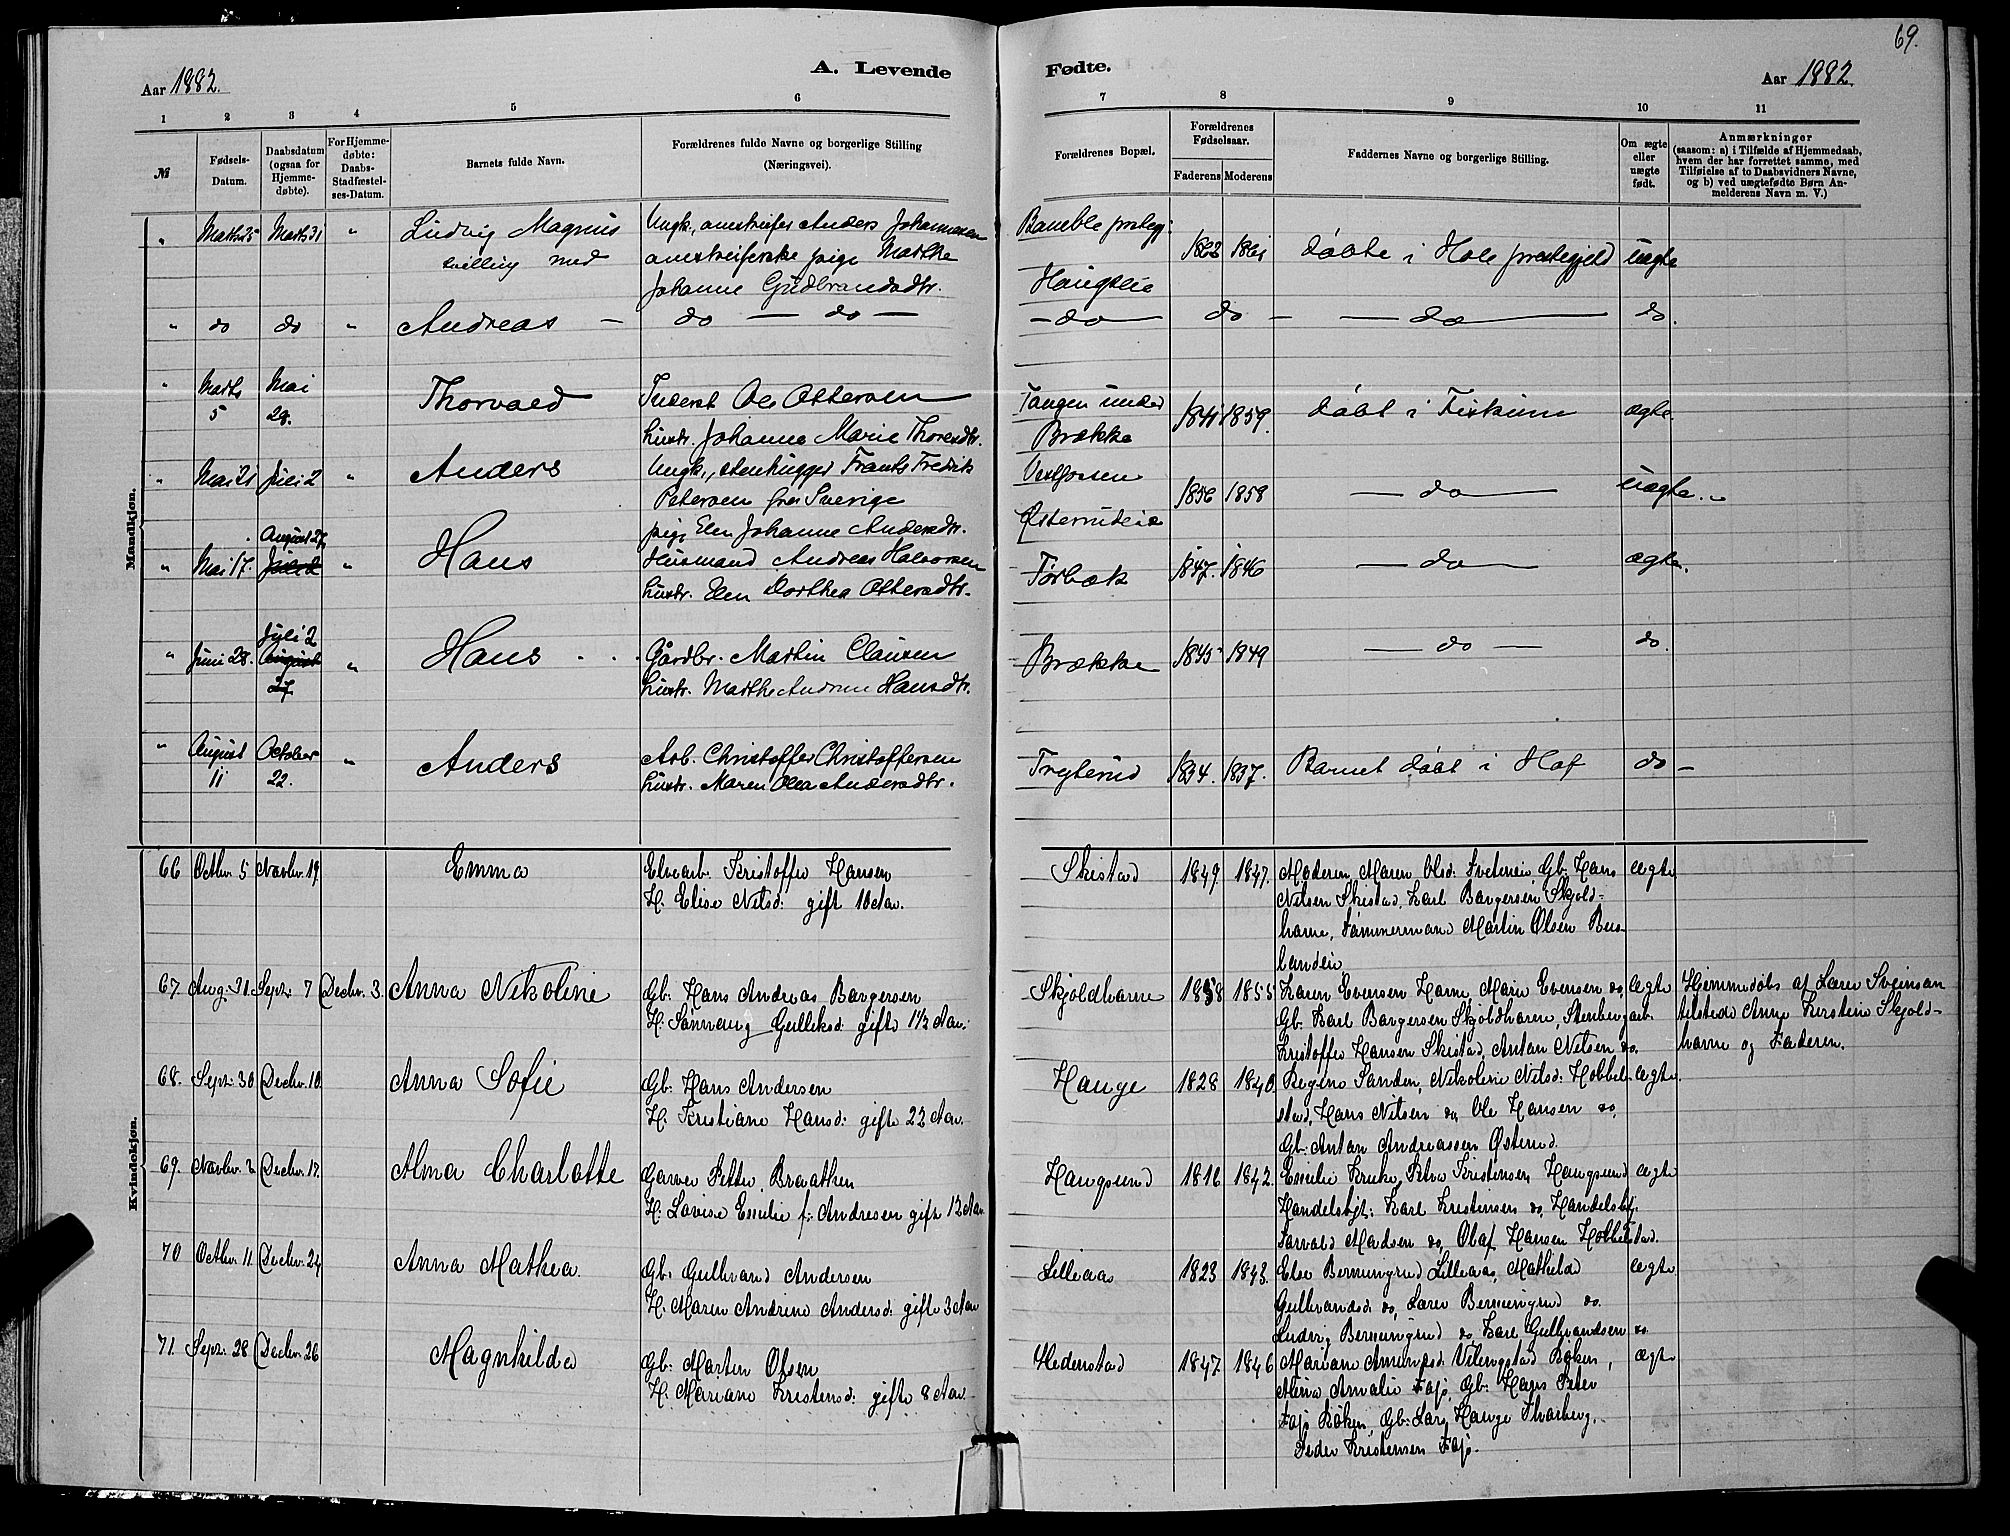 69.
Aar 1882.
A. Levende
Fødte.
Aar 1882
1 2 3 4 5 6 7 8 9 10 11
№
Fødsels-
Datum.
Daabsdatum
(ogsaa for
Hjemme-
døbte).
For Hjemme-
døbte:
Daabs-
Stadfæstel-
ses-Datum.
Barnets fulde Navn.
Forældrenes fulde Navne og borgerlige Stilling
(Næringsvei).
Forældrenes Bopæl.
Forældrenes
Fødselsaar.
Faderens
Moderens
Faddernes Navne og borgerlige Stilling.
Om ægte
eller
uægte
født.
Anmærkninger
(saasom: a) i Tilfælde af Hjemmedaab,
hvem der har forrettet samme, med
Tilføielse af to Daabsvidners Navne,
og b) ved uægtefødte Børn An-
melderens Navn m. V.)
Mandkjøn.
" Marts 25 Marts 31 " Ludvig Magnus
tvilling med
Ungk., omstreifer Anders Johannesen
omstreiferske pige Marthe
Johanne Gudbrandsdtr.
Bamble prstgj:
Haugslie
1862 1861 døbte i Hole prestegjeld uægte
" do do " Andreas — do — do —
— do — do — — do — do.
" Marts
5
Mai
28.
Thorvald
Inderst Ole Ottersen
hustr. Johanne Marie Thoresdtr.
Tangen under
Brække
1841 1859. døbt i Fiskum ægte
" Mai 21 Juli 2 " Anders
Ungk., stenhugger Frants Fredrik
Petersen fra Sverige
pige Elen Johanne Andersdtr.
Vestfossen
Østerudeie
1856 1858 — do — uægte.
" Mai 17.
August 27
" Hans
Husmand Andreas Halvorsen
hustr. Elen Dorthea Ottersdtr.
Førbæk 1847. 1846 — do — ægte.
" Juni 28.
Juli 2
August
27
" Hans
Gårdbr. Martin Clausen
hustr. Marthe Andrine Hansdtr.
Brække 1845 1849 — do — do.
" August
11
October
22.
" Anders
Arb. Christoffer Christoffersen
hustr. Maren Olea Andersdtr.
Trygterud 1834. 1837. Barnet døbt i Hof do —
Kvindekjøn.
66 Octbr. 5 Novbr. 19. Emma
Elvearb. Kristoffer Hansen
H. Elise Nilsd: gift 10 Aar.
Skistad 1849. 1847. ægte
Moderen, Maren Olsd: Tveteneie, Gb: Hans
Nilsen Skistad, Karl Borgersen Skjold-
harne, Tømmermand Martin Olsen Bus-
landeie.
67. Aug: 31. Septr: 7 Decbr. 3. Anna Nikoline
Gb: Hans Andreas Borgersen
H: Sønnaug Gulliksd: gifte 1½ Aar.
Skjoldharne 1858 1855 ægte
Karen Evensen Harne, Marie Evensen do,
Gb. Karl Borgersen Skjoldharne, Stenbergarb.
Kristoffer Hansen Skistad, Anton Nilsen do.
Hjemmedøbt af Lærer Sveinsan
tilstede Anne Kerstine Skjold-
harne og Faderen.
68. Septr: 30 Decbr. 10 Anna Sofie
Gb: Hans Andersen
H. Kristiane Hansd: gifte 22 Aar.
Hauge 1828 1840. ægte.
Regine Sanden, Nikoline Nilsd: Hobbel-
stad, Hans Nilsen do, Ole Hansen do,
Gb: Anton Andreassen Østerud.
69. Novbr. 2 Decbr. 17. Alma Charlotte
Garver Petter Braathen
H. Lovise Emilie f: Andresen gift 12 Aar.
Haugsund 1816 1842. ægte
Emilie Kruke, Petra Kristensen Haugsund
Handelsbgt: Karl Kristensen do, Handelsbgt.
Torvald Madsen do, Olaf Hansen Hobbelstad.
70 Octbr. 11. Decbr. 24 Anna Mathea.
Gb: Gulbrand Andersen
H. Maren Andrine Andersd: gifte 3 Aar
Lilleaas 1823 1843. ægte
Else Berningrud Lilleaas, Mathilde
Gulbrandsd: do, Lærer Berningrud do.
Ludvig Berningrud do, Karl Gulbrandsen do
71. Septr: 28 Decbr. 26 Magnhilda
Gb: Morten Olsen
H. Mariane Kristensd: gifte 8 Aar.
Hedenstad 1847 1846 ægte
Mariane Amundsd: Vilingstad Røken,
Alvina Amalie Fajø, Gb: Hans Peter
Fajø Røken, Gb: Lars Hauge Thorberg,
Peder Kristensen Fajø.